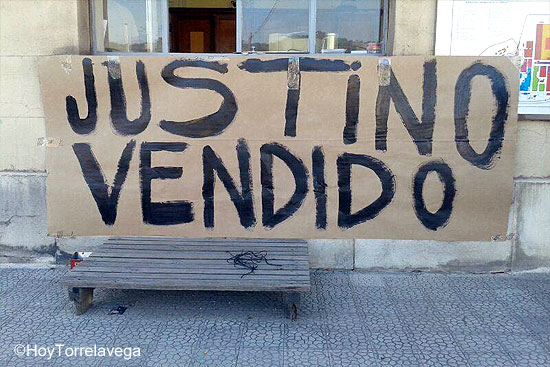 JUSTINO
VENDIDO
©HoyTorrelavega